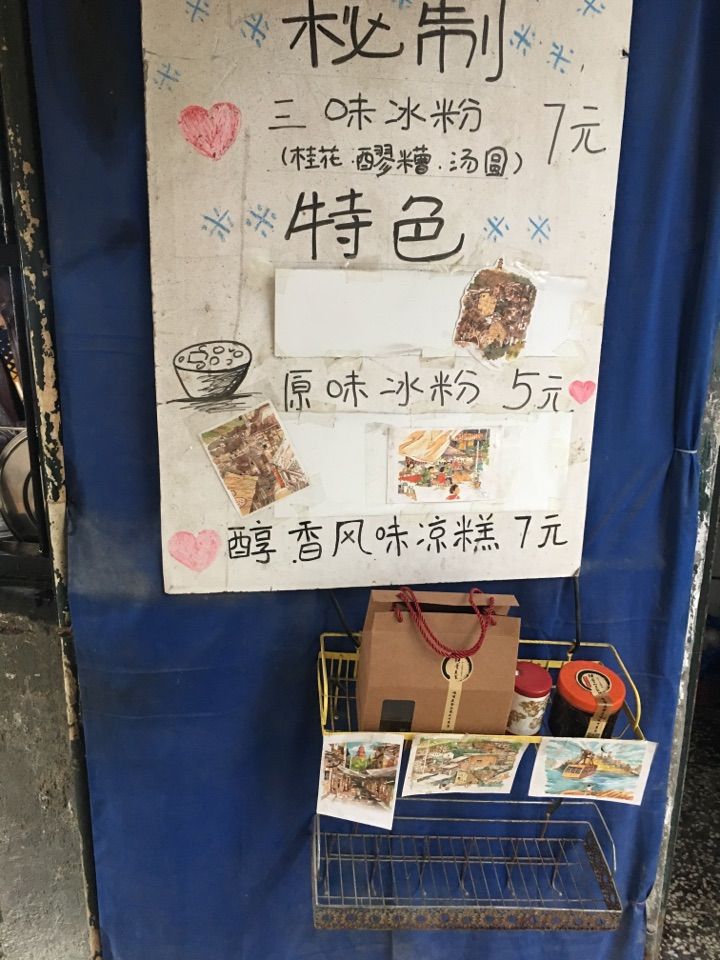 秘制
三味冰粉 7元
(桂花.醪糟.汤圆)
特色
原味冰粉 5元
醇香风味凉糕 7元